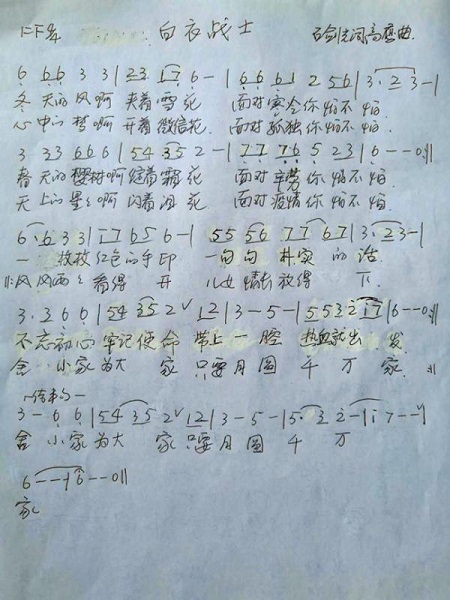 1=F 4/4 白衣战士 石剑词高莲曲
6 6 6 3 3 | 2 3 1 7 6 - | 6 6 6 1 2 5 6 | 3 · 2 3 - |
冬 天的 风啊 夹着 雪 花 面对 寒冷 你 怕不 怕
心 中的 梦啊 开着 微信花 面对 孤独 你 怕不 怕
3 3 3 6 6 6 | 5 4 3 5 2 - | 7 7 7 6 5 2 3 | 6 - - 0 :||
春 天的 樱树啊 绽着 霜 花 面对 辛劳 你 怕不 怕
天 上的 星星啊 闪着 泪 花 面对 疫情 你 怕不 怕
6 · 6 3 3 | 1 7 6 5 6 - | 5 5 5 6 7 7 6 7 | 3 · 2 3 - |
一 枚枚 红色的 手 印 一句 句 朴 实 的 话
||: 风 风雨雨 看得 开 儿女 情长 放得 下
3 . 3 6 6 | 5 4 3 5 2 ∨ 1 2 | 3 - 5 - | 5 5 3 2 1 7 | 6 - - 0 :||
不 忘 初心 牢记 使命 带上 一 腔 热血就出 发
舍 小家 为大 家 只要 月 圆 千 万 家 :||
结束句
3 - 6 6 | 5 4 3 5 2 ∨ 1 2 | 3 - 5 - | 5 · 3 2 - | 1 7 - - ∨ |
舍 小家 为大 家 只要 月 圆 千 万
6 - - - | 6 - - 0 ||
家